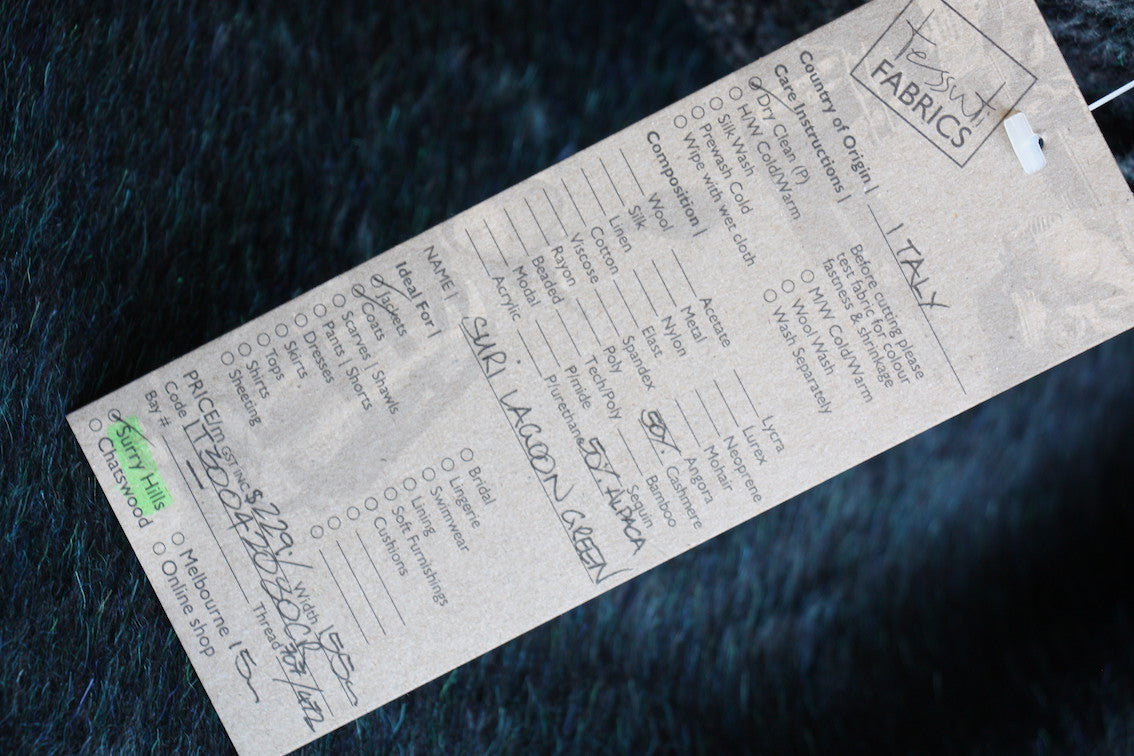 tessuti
FABRICS
Country of Origin | ITALY
Care Instructions |
Dry Clean (P)
H/W Cold/Warm
Silk Wash
Prewash Cold
Wipe with wet cloth
Before cutting please
test fabric for colour
fastness & shrinkage
M/W Cold/Warm
Wool Wash
Wash Separately
Composition |
Wool Acetate Lycra
Silk Metal Lurex
Linen Nylon Neoprene
Cotton Elast Mohair
Viscose Spandex Angora
Rayon Poly 50% Cashmere
Beaded Tech/Poly Bamboo
Modal P/mide Sequin
Acrylic P/urethane 50% ALPACA
NAME | SURI LAGOON GREEN
Ideal For |
Jackets
Coats
Scarves | Shawls
Pants | Shorts
Dresses
Skirts
Tops
Shirts
Sheeting
Bridal
Lingerie
Swimwear
Lining
Soft Furnishings
Cushions
PRICE/m GST INC. $229.- Width 155cm
Code Thread
Bay #
Surry Hills Melbourne 15m
Chatswood Online shop